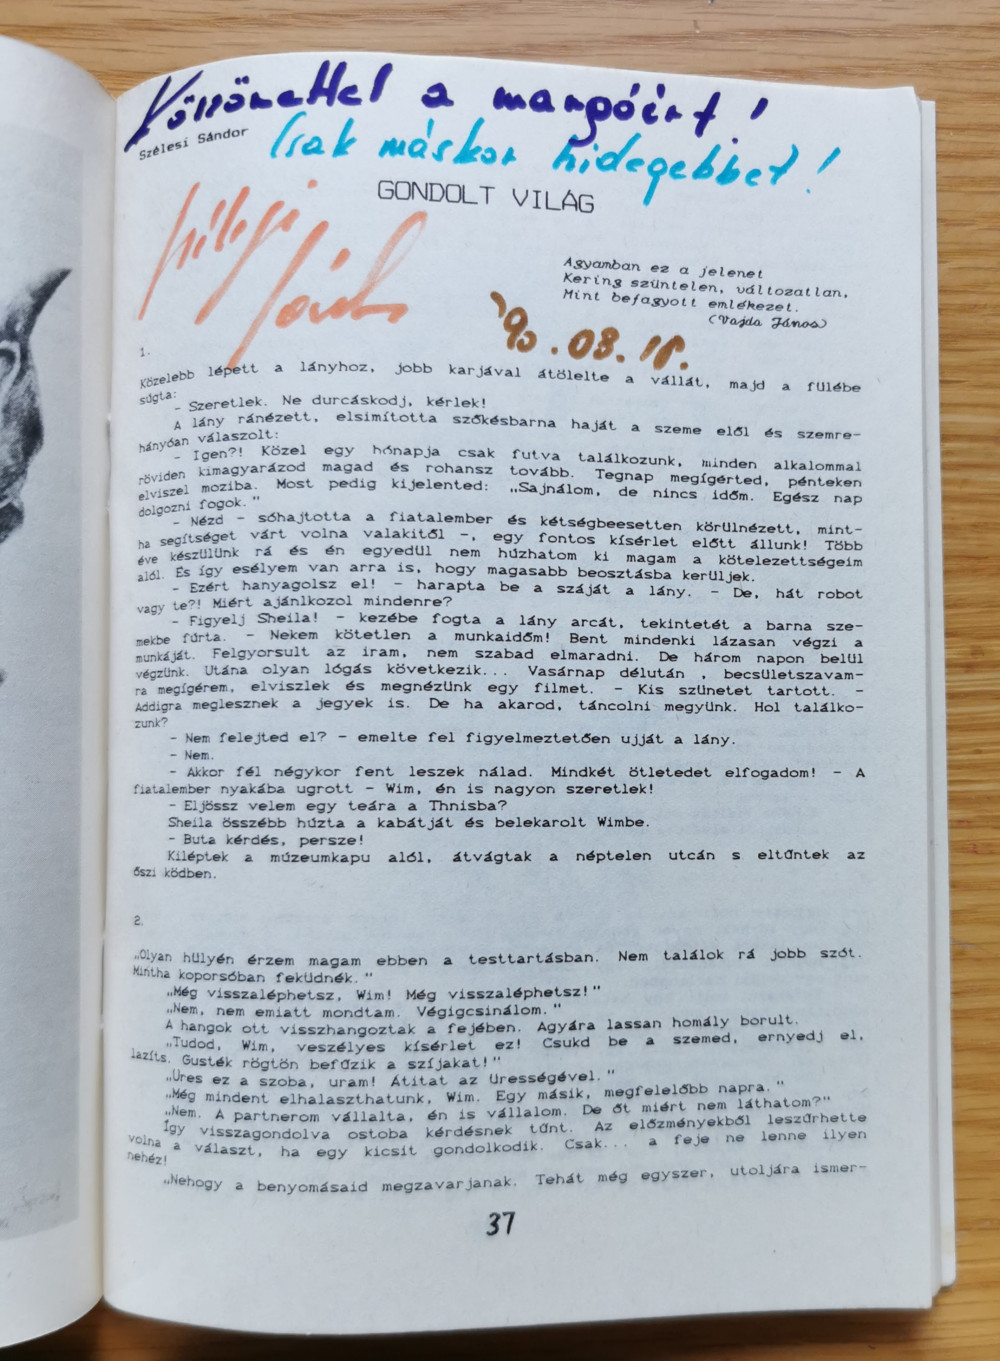 Köszönettel a mangóért!
Csak máskor hidegebbet!
Szélesi Sándor
GONDOLT VILÁG
Szélesi
Sándor
'90.08.18.
Agyamban ez a jelenet
Kering szüntelen, változatlan,
Mint befagyott emlékezet.
(Vajda János)
1.
Közelebb lépett a lányhoz, jobb karjával átölelte a vállát, majd a fülébe
súgta:
- Szeretlek. Ne durcáskodj, kérlek!
A lány ránézett, elsimította szőkésbarna haját a szeme elől és szemre-
hányóan válaszolt:
- Igen?! Közel egy hónapja csak futva találkozunk, minden alkalommal
röviden kimagyarázod magad és rohansz tovább. Tegnap megígérted, pénteken
elviszel moziba. Most pedig kijelented: „Sajnálom, de nincs időm. Egész nap
dolgozni fogok."
- Nézd - sóhajtotta a fiatalember és kétségbeesetten körülnézett, mint-
ha segítséget várt volna valakitől -, egy fontos kísérlet előtt állunk! Több
éve készülünk rá és én egyedül nem húzhatom ki magam a kötelezettségeim
alól. És így esélyem van arra is, hogy magasabb beosztásba kerüljek.
- Ezért hanyagolsz el! - harapta be a száját a lány. - De, hát robot
vagy te?! Miért ajánlkozol mindenre?
- Figyelj Sheila! - kezébe fogta a lány arcát, tekintetét a barna sze-
mekbe fúrta. - Nekem kötetlen a munkaidőm! Bent mindenki lázasan végzi a
munkáját. Felgyorsult az iram, nem szabad elmaradni. De három napon belül
végzünk. Utána olyan lógás következik... Vasárnap délután , becsületszavam-
ra megígérem, elviszlek és megnézünk egy filmet. - Kis szünetet tartott. -
Addigra meglesznek a jegyek is. De ha akarod, táncolni megyünk. Hol találko-
zunk?
- Nem felejted el? - emelte fel figyelmeztetően ujját a lány.
- Nem.
- Akkor fél négykor fent leszek nálad. Mindkét ötletedet elfogadom! - A
fiatalember nyakába ugrott - Wim, én is nagyon szeretlek!
- Eljössz velem egy teára a Thnisba?
Sheila összébb húzta a kabátját és belekarolt Wimbe.
- Buta kérdés, persze!
Kiléptek a múzeumkapu alól, átvágtak a néptelen utcán s eltűntek az
őszi ködben.
2.
„Olyan hülyén érzem magam ebben a testtartásban. Nem találok rá jobb szót.
Mintha koporsóban feküdnék."
„Még visszaléphetsz, Wim! Még visszaléphetsz!"
„Nem, nem emiatt mondtam. Végigcsinálom."
A hangok ott visszhangoztak a fejében. Agyára lassan homály borult.
„Tudod, Wim, veszélyes kísérlet ez! Csukd be a szemed, ernyedj el,
lazíts. Gusték rögtön befűzik a szíjakat!"
„Üres ez a szoba, uram! Átitat az ürességével."
„Még mindent elhalaszthatunk, Wim. Egy másik, megfelelőbb napra."
„Nem. A partnerom vállalta, én is vállalom. De őt miért nem láthatom?"
Így visszagondolva ostoba kérdésnek tűnt. Az előzményekből leszűrhette
volna a választ, ha egy kicsit gondolkodik. Csak... a feje ne lenne ilyen
nehéz!
„Nehogy a benyomásaid megzavarjanak. Tehát még egyszer, utoljára ismer-
37